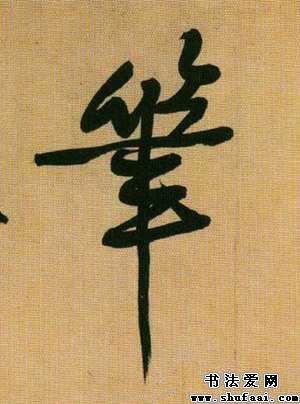 筆
书法爱网
www.shufaai.com